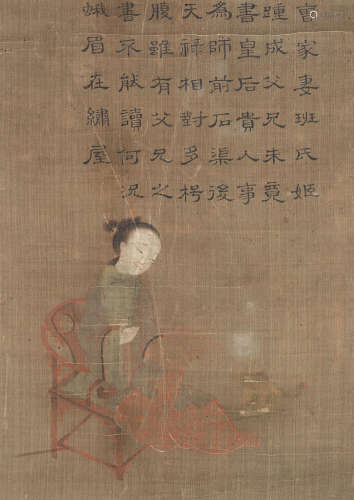 曹家妻班氏姬
踵成父兄未竟
書皇后貴人事
為師前石渠後
天祿相對多枵
腹雖有父兄之
書不能讀何況
蛾眉在繡屋